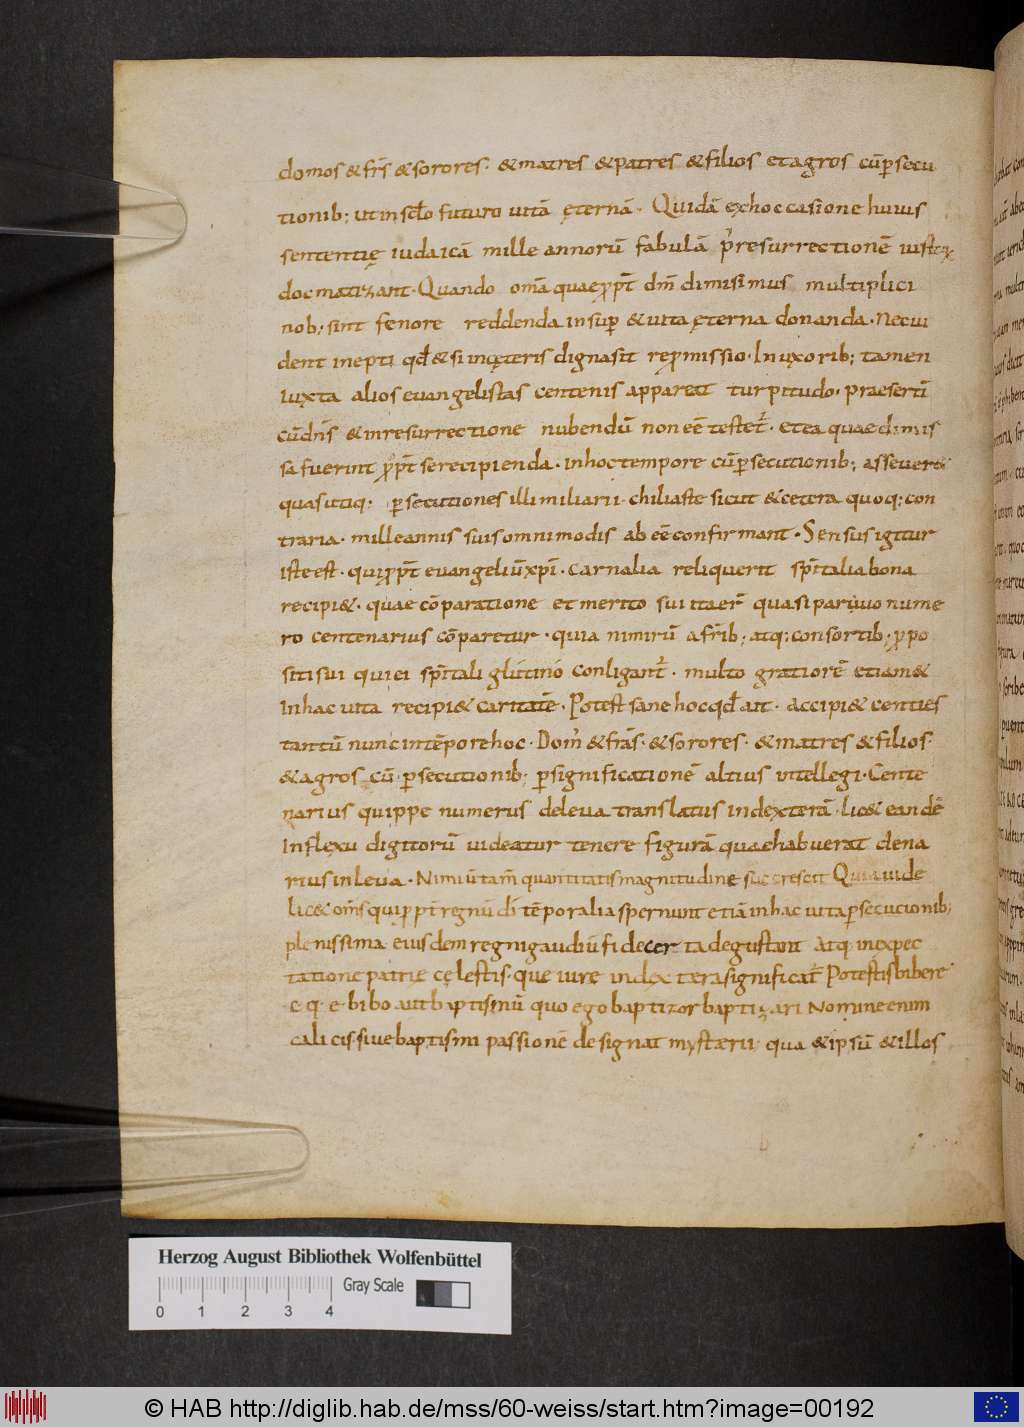 domos & fr̄s & sorores · & matres & patres & filios et agros cū p̄secu
tionib; ut in scl̄o futuro uitā ęternā · Quidā ex hoc casione huius
sententię iudaicā mille annorū fabulā p̄ resurrectionē iustæ
docmatizant · Quando om̄a quae p̄pt̄ dn̄m dimisimus multiplici
nob; sint fenore reddenda insup̄ & uita ęterna donanda · Necui
dent inepti qd̄ & si in cęteris digna sit repromissio · In uxorib; tamen
iuxta alios euangelistas centenis appareat turpitudo · praesertī
cū dn̄s & in resurrectione nubendū non eē testet̄ · et ea quae dimis
sa fuerint p̄pt̄ se recipienda · in hoc tempore cū p̄secutionib; asseuere
quas utiq; p̄secutiones illi miliarii · chiliaste sicut & cetera quoq; con
traria · mille annis suis omnimodis abeē confirmant · Sensus igitur
iste est · qui p̄pt̄ euangeliū xp̄i · carnalia reliquerit sp̄italia bona
recipi& · quae cōparatione et merito sui ita er̄ quasi paruuo nume
ro centenarius cōparetur · quia nimirū a fr̄ib; atq; consortib; propo
siti sui qui ei sp̄itali glutino conligant̄ · multo gratiorē etiam &
in hac uita recipi& caritatē · Potest sane hoc qd̄ ait · Accipi& centies
tantū nunc in tēpore hoc · Dom̄ & fr̄as · & sorores · & matres & filios ·
& agros cū p̄secutionib; p̄ significationē altius intellegi · Cente
narius quippe numerus de leua translatus in dexterā · lic& eandē
In flexu digitorū uideatur tenere figurā quae habuerat dena
rius in leua · Nimiū tam̄ quantitatis magnitudine succrescit Quia uide
lic& om̄s qui p̄pt̄ regnū dī tēporalia spernunt etiā in hac uita p̄secucionib;
plenissima eiusdem regni gaudiū fide certa degustant Atq; in expec
tatione patrie cęlestis · que iure in dextera significat̄ Potestis bibere
c · q · e · bibo aut baptismū quo ego baptizor baptizari Nomine enim
calicis · siue baptismi passionē designat mysterii; qua & ipsū & illos
Herzog August Bibliothek Wolfenbüttel
Gray Scale
0 1 2 3 4
© HAB http://diglib.hab.de/mss/60-weiss/start.htm?image=00192